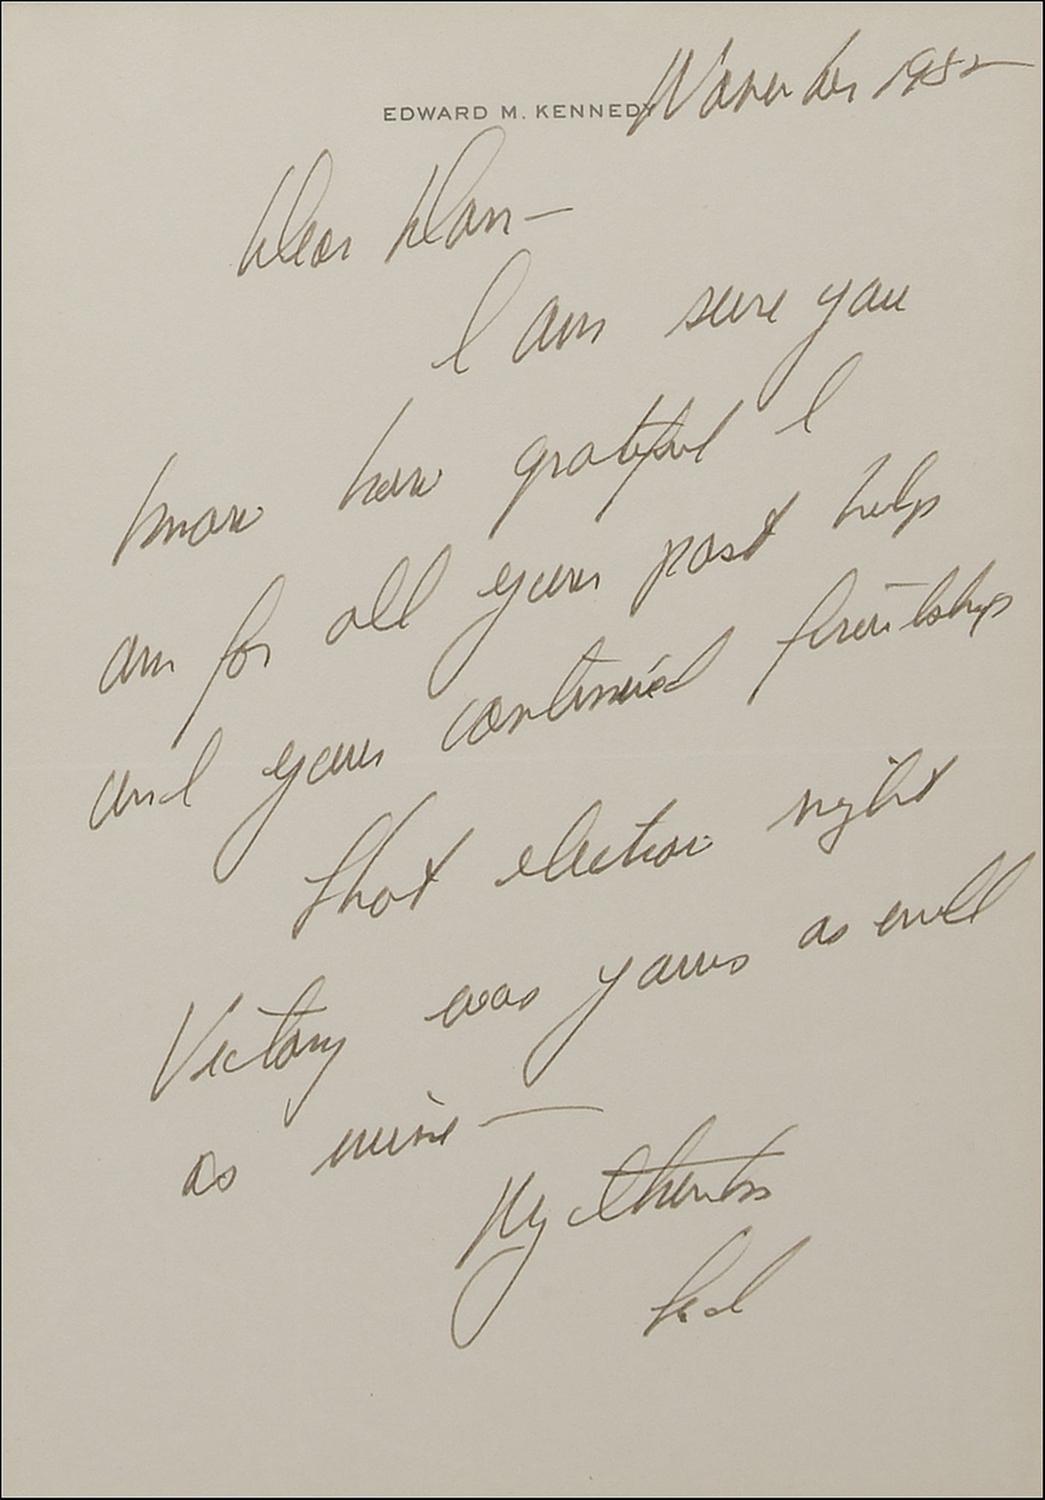 November 1982
EDWARD M. KENNEDY
Dear Dan—
I am sure you
know how grateful I
am for all your past help
and your continued friendship
That election night
Victory was yours as well
as mine—
My thanks
Ted